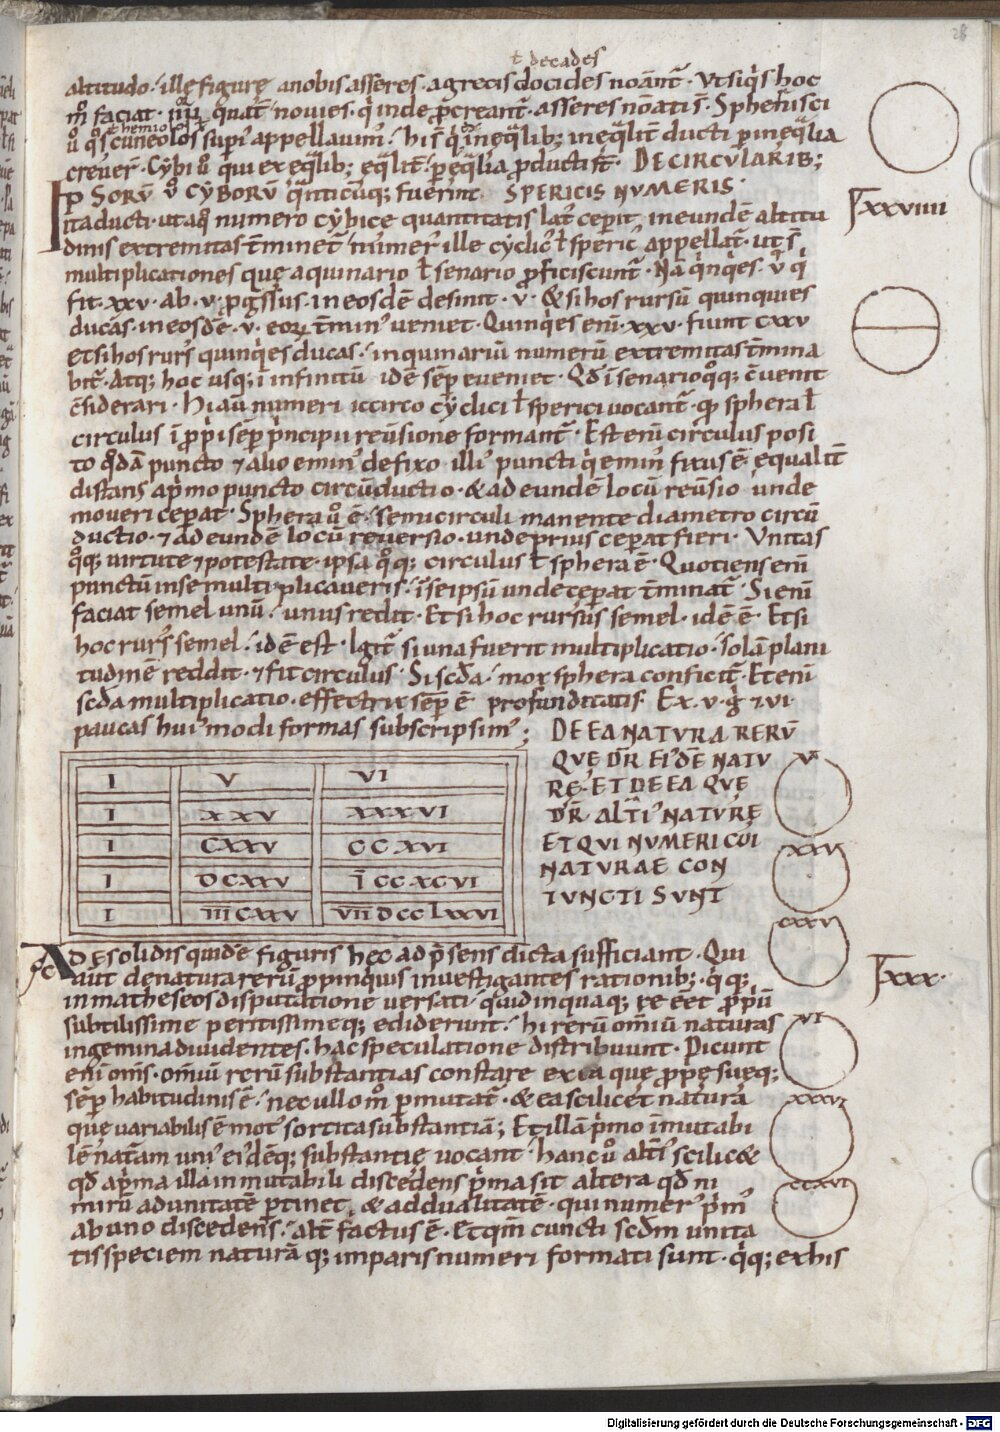 28
ł decades
altitudo · illę figurę a nobis asseres · a grecis docides noāntˉ · Vt siq̇s hoc
m̊ faciat · quatˉ nouies · q̇ inde p̄creantˉ · asseres noāti sˉ · Spheni sci
ł hemiolos
cuneolos supˉ appellauimˀ · his inęq̄lib; ineq̄lit̄ ducti p ineq̄lia
creuerˉ · Cybi ů qui ex eq̄lib; eq̄lit̄ p eq̄lia producti st̄ · DE CIRCVLARIB;
IPSORV̄ V̊ CYBORV̄ q̄nticūq; fuerint SPERICIS NVMERIS ·
ita ducti · ut a q̊ numero cybicę quantitatis latˀ ceperit, in eundē altitu
dinis extremitas t̄minetˉ numerˀ ille cyclicˀ ł spericˀ appellatˉ · ut sˉ
multiplicationes quę a quinario ł senario p̄ficiscuntˉ · Nā q̇nq̇es · v̄ q̇
fit · xxv · ab · v · p̄gssus · in eosdē desinit · v · & si hos rursū quinquies
ducas · in eosdē · v · eorˉ t̄minˀ ueniet · Quinq̇es eni · xxv · fiunt cxxv
et si hos rursˀ quinq̇es ducas · in quinariū numerū extremitas t̄mina
bitˉ · Atq; hoc usq; ī infinitū idē sēp eueniet · Qđ ī senario q̊q; c̄uenit
c̄siderari · Hi aūt numeri iccirco cyclici ł sperici uocantˉ · qđ sphera ł
circulus ī prop̄i sēp p̄ncipii reūsione formantˉ · Est enī circulus posi
to q̊dā puncto ⁊ alio eminˀ defixo illiˀ puncti q̇ eminˀ fixus ē · equalit̄
distans a p̄mo puncto circūductio · & ad eundē locū reūsio unde
moueri ceperat · Sphera ů ē · semicirculi manente diametro circū
ductio · ⁊ ad eundē locū reuersio · unde prius ceperat fieri · Vnitas
q̊q; uirtute ⁊ potestate · ipsa q̊q; circulus ł sphera ē · Quotiens enī
punctū in se multiplicaueris · ī se ipsū unde ceperat t̄minatˉ · Si enī
faciat semel unū · unus redit · Et si hoc rursus semel · idē ē · Et si
hoc rursˀ semel · idē est · Igitˉ si una fuerit multiplicatio · solā plani
tudinē reddit · ⁊ fit circulus · Si scđa · mox sphera conficitˉ · Etenī
scđa multiplicatio · effectrix sēp ē profunditatis · Ex · v · g̊ ⁊ vi
paucas huiˀmodi formas subscripsimˀ ;
DE EA NATVRA RERV̄
QVĘ DR̄ EIˀDĒ NATV
RĘ · ET DE EA QVĘ
DR̄ ALTI̅ˀ NATVRĘ
ET QVI NVMERI CVI
NATVRAE CON
IVNCTI SVNT
I V VI
I XXV XXXVI
I CXXV CCXVI
I DCXXV ĪCCXCVI
I ĪĪĪCXXV V̄ĪĪDCCLXXVI
Ad De solidis quidē figuris hęc ad p̄sens dicta sufficiant · Qui
aūt de natura rerū propinquius inuestigantes rationib; · q̇q;
in matheseos disputatione uersati · q̇d in quaq; re eet̄ propˉū
subtilissime peritissimeq; ediderunt · hi rerū om̄iū naturas
in gemina diuidentes · hac speculatione distribuunt · Dicunt
enī om̄s · om̄iū rerū substantias constare ex ea quę p̄prię suęq;
sēp habitudinis ē · nec ullo m̊ p̄mutatˉ · & ea scilicet natura
quę uariabilis ē motˀ sortita substantiā; Et illā p̄mo īmutabi
lē naturam uniˀ eiˀdēq; substantię uocant · hanc ů altiˀ scilic&
qđ a p̄ma illa inmutabili discedens p̄ma sit altera qđ ni
mirū ad unitatē p̄tinet · & ad dualitatē · qui numerˀ p̄mˀ
ab uno discedens · alt̄ factus ē · Et qm̄ cuncti scđm unita
tis speciem naturā q; imparis numeri formati sunt · q̇q; ex his
XXVIIII
XXX ·
V
XXV
CXXV
VI
XXXVI
CCXVI
Digitalisierung gefördert durch die Deutsche Forschungsgemeinschaft - DFG